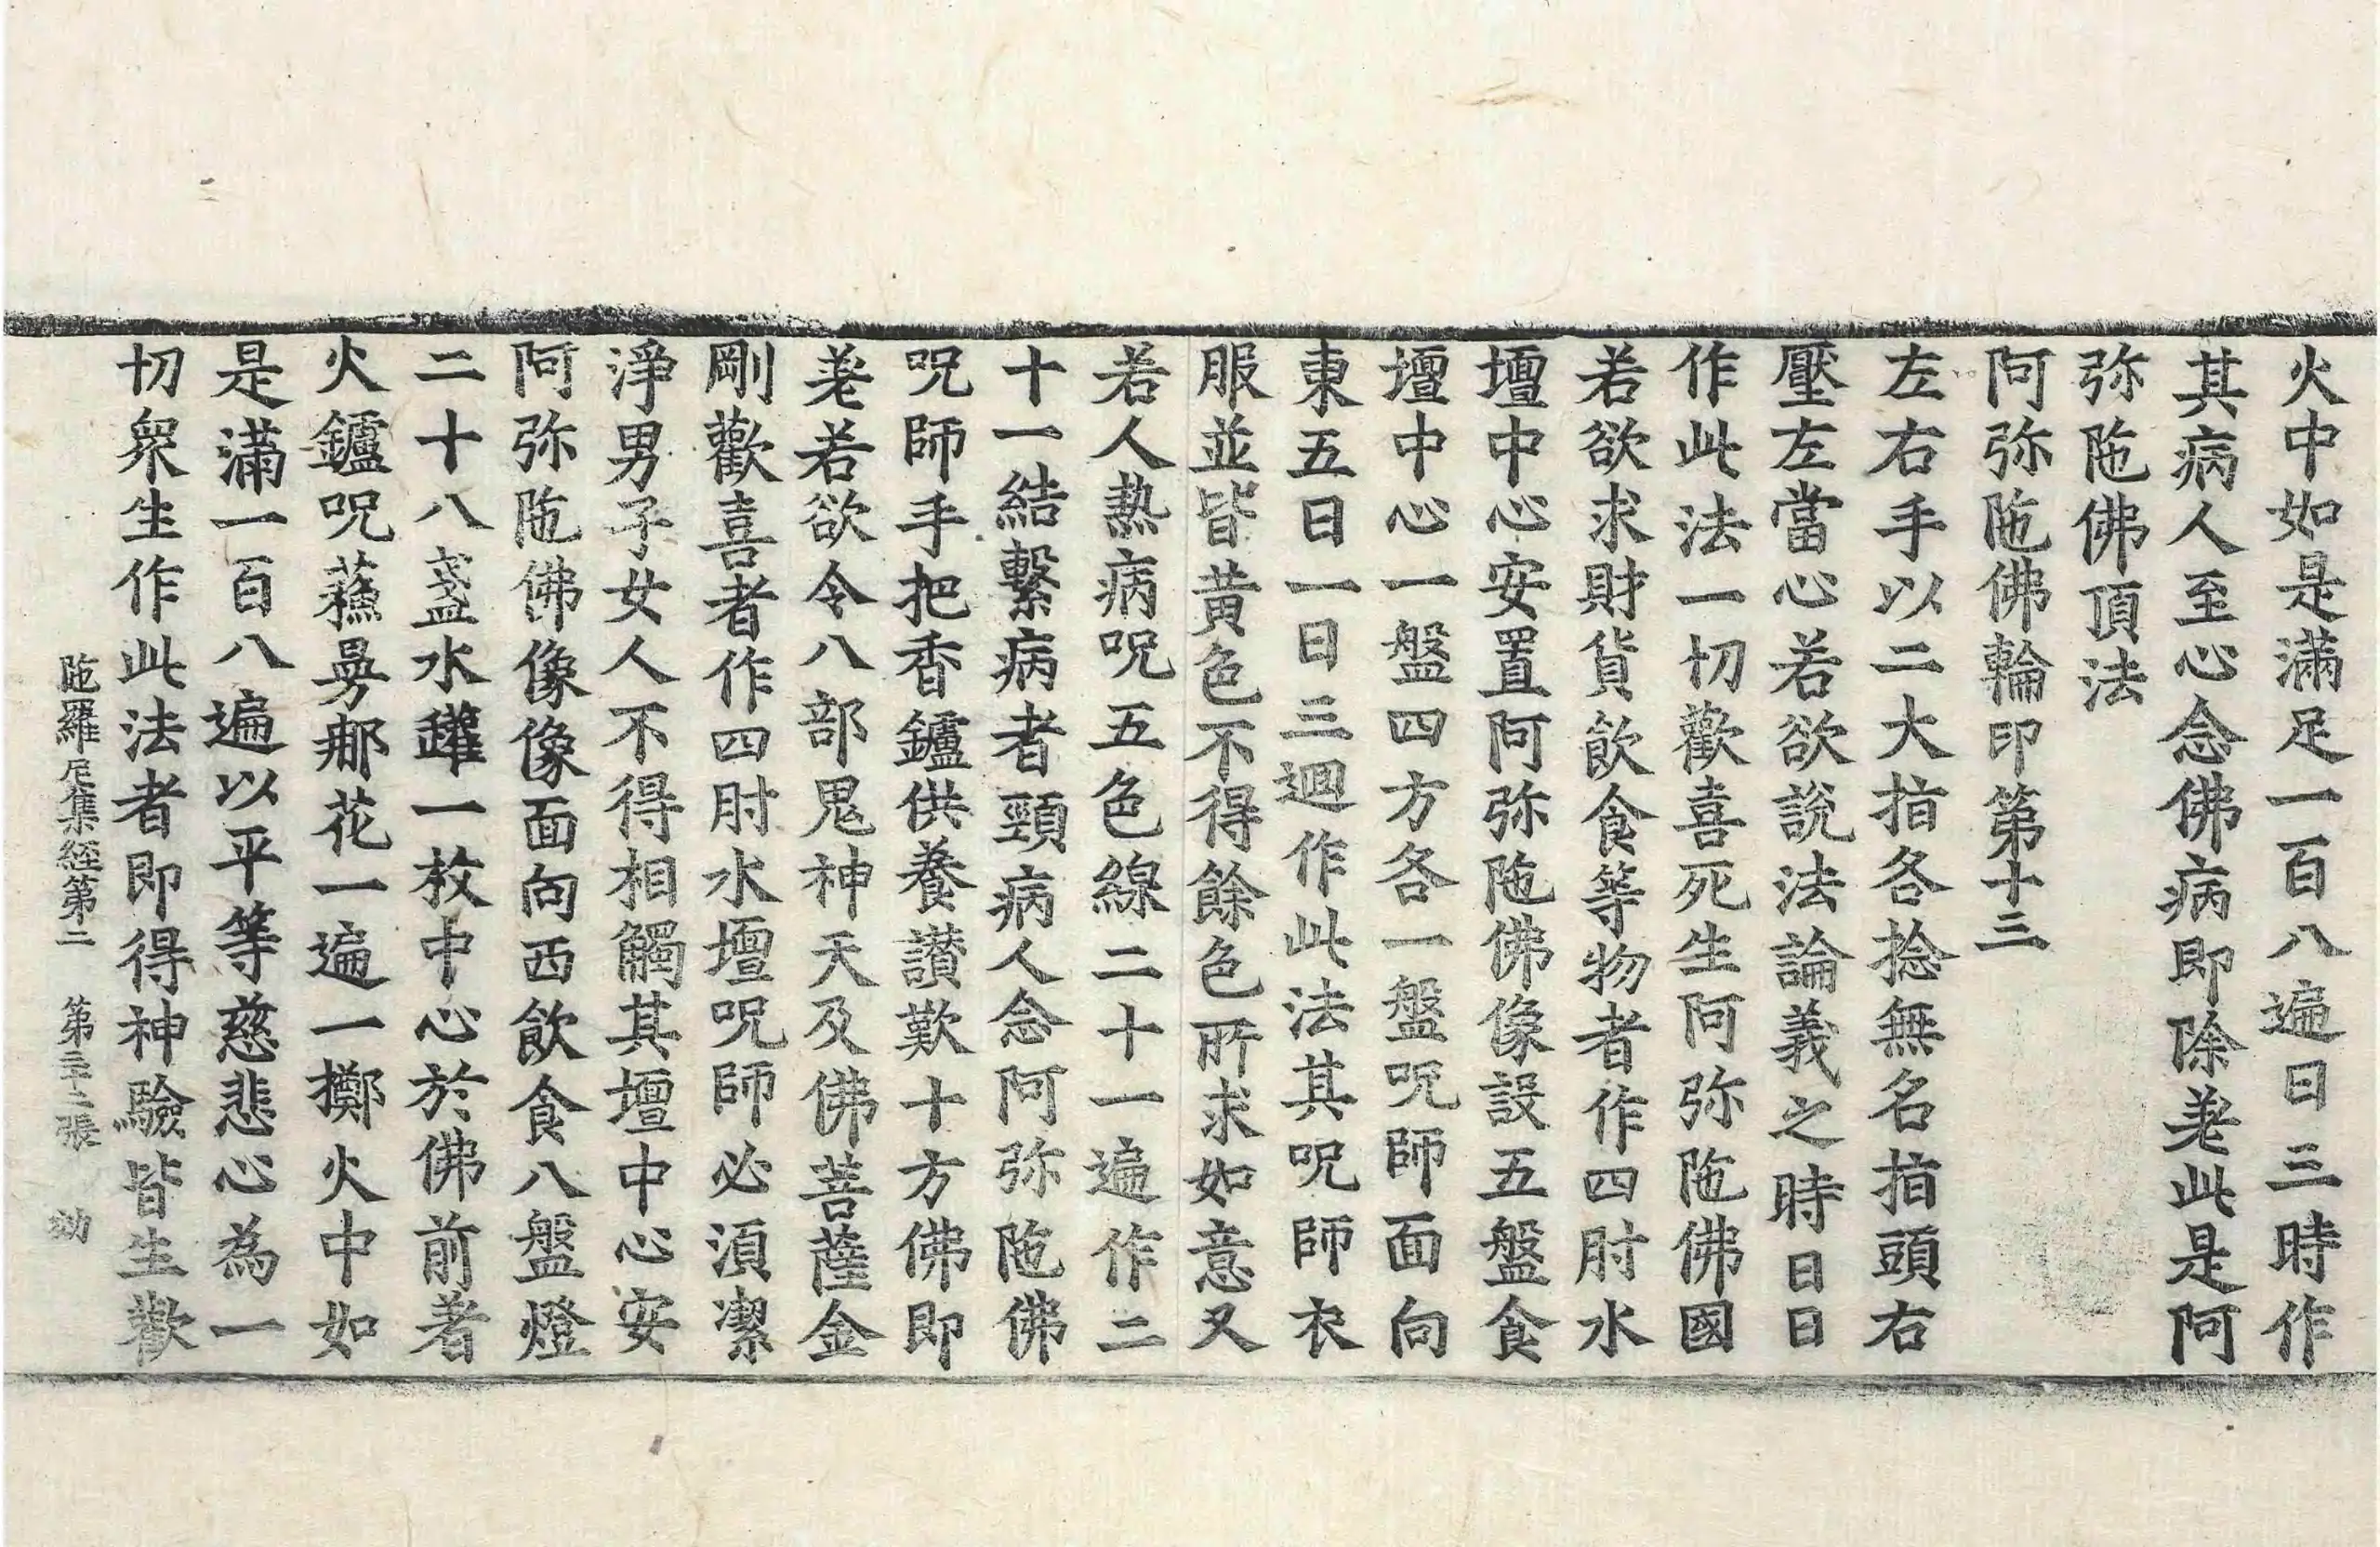 火中如是滿足一百八遍日三時作
其病人至心念佛病即除差此是阿
弥陁佛頂法
阿弥陁佛輪印第十三
左右手以二大指各捻無名指頭右
壓左當心若欲說法論義之時日日
作此法一切歡喜死生阿弥陁佛國
若欲求財貨飲食等物者作四肘水
壇中心安置阿弥陁佛像設五盤食
壇中心一盤四方各一盤呪師面向
東五日一日三迴作此法其呪師衣
服並皆黃色不得餘色所求如意又
若人熱病呪五色線二十一遍作二
十一結繫病者頸病人念阿弥陁佛
呪師手把香鑪供養讃歎十方佛即
差若欲令八部鬼神天及佛菩薩金
剛歡喜者作四肘水壇呪師必須潔
淨男子女人不得相觸其壇中心安
阿弥陁佛像像面向西飲食八盤燈
二十八盞水罐一枚中心於佛前著
火鑪呪蘓曼那花一遍一擲火中如
是滿一百八遍以平等慈悲心為一
切衆生作此法者即得神驗皆生歡
陁羅尼集経第二 第三十二張 効